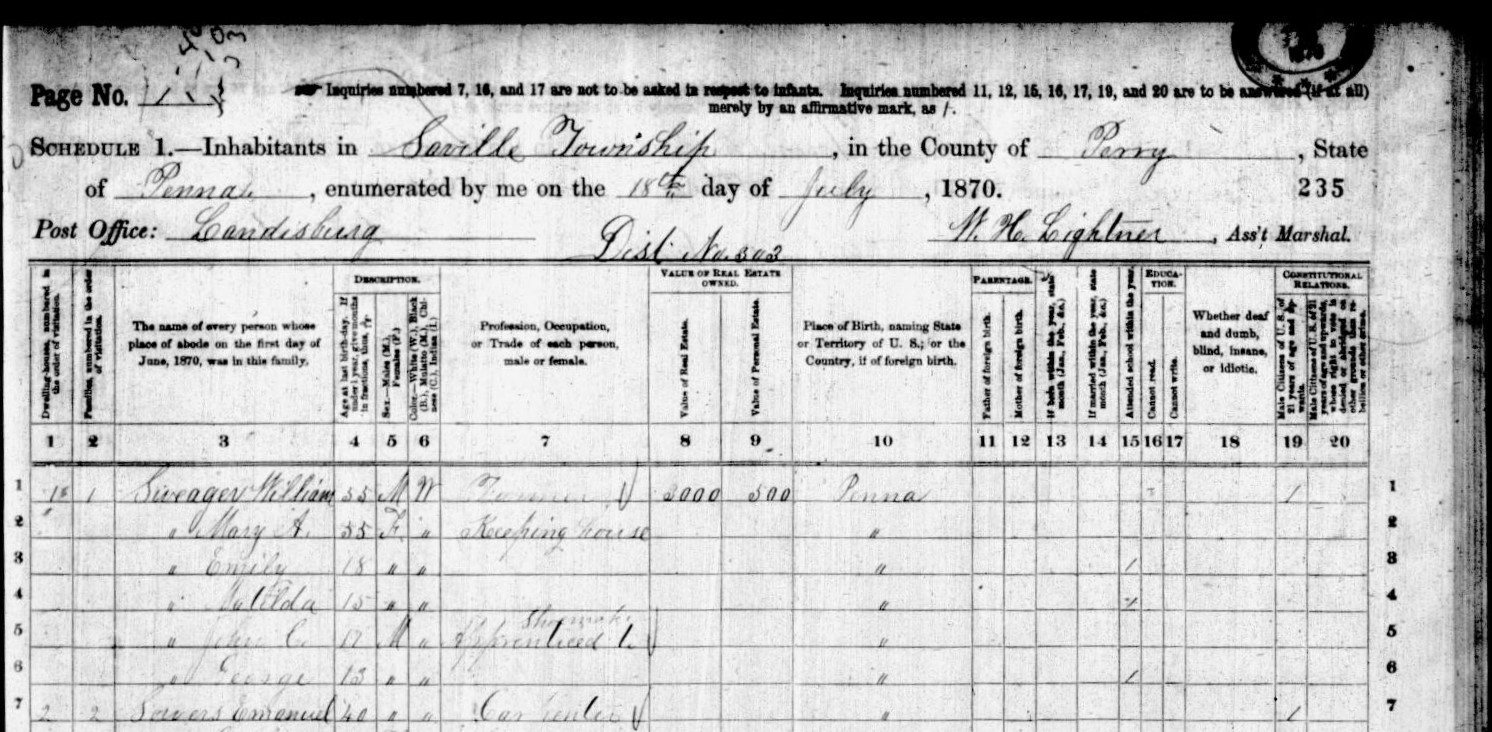 Page No. 1
Inquiries numbered 7, 16, and 17 are not to be asked in respect to infants. Inquiries numbered 11, 12, 15, 16, 17, 19, and 20 are to be answered (if at all)
merely by an affirmative mark, as /.
SCHEDULE 1.—Inhabitants in Saville Township, in the County of Perry, State
of Penna., enumerated by me on the 18th day of July, 1870. 235
Post Office: Landisburg W. H. Lightner, Ass't Marshal.
Dist. No. 303
DESCRIPTION. VALUE OF REAL ESTATE OWNED. PARENTAGE. EDUCATION. CONSTITUTIONAL RELATIONS.
Dwelling-houses, numbered in the order of visitation.
Families, numbered in the order of visitation.
The name of every person whose
place of abode on the first day of
June, 1870, was in this family.
Age at last birth-day. If under 1 year, give months in fractions, thus,
Sex.—Males (M.), Females (F.)
Color.—White (W.), Black (B.), Mulatto (M.), Chinese (C.), Indian (I.)
Profession, Occupation,
or Trade of each person,
male or female.
Value of Real Estate.
Value of Personal Estate.
Place of Birth, naming State
or Territory of U. S.; or the
Country, if of foreign birth.
Father of foreign birth.
Mother of foreign birth.
If born within the year, state month (Jan., Feb., &c.)
If married within the year, state month (Jan., Feb., &c.)
Attended school within the year.
Cannot read.
Cannot write.
Whether deaf
and dumb,
blind, insane,
or idiotic.
Male Citizens of U. S. of 21 years of age and upwards.
Male Citizens of U. S. of 21 years of age and upwards, whose right to vote is denied or abridged on other grounds than rebellion or other crime.
1 2 3 4 5 6 7 8 9 10 11 12 13 14 15 16 17 18 19 20
1 1 1 Sweager William 55 M W Farmer 3000 500 Penna / 1
2 " Mary A. 55 F. " Keeping house " 2
3 " Emily 18 " " " / 3
4 " Matilda 15 " " " / 4
5 " John C. 17 M " Apprenticed t. " 5
6 " George 13 " " " / 6
7 2 2 Sowers Emanuel 40 " Carpenter " / 7